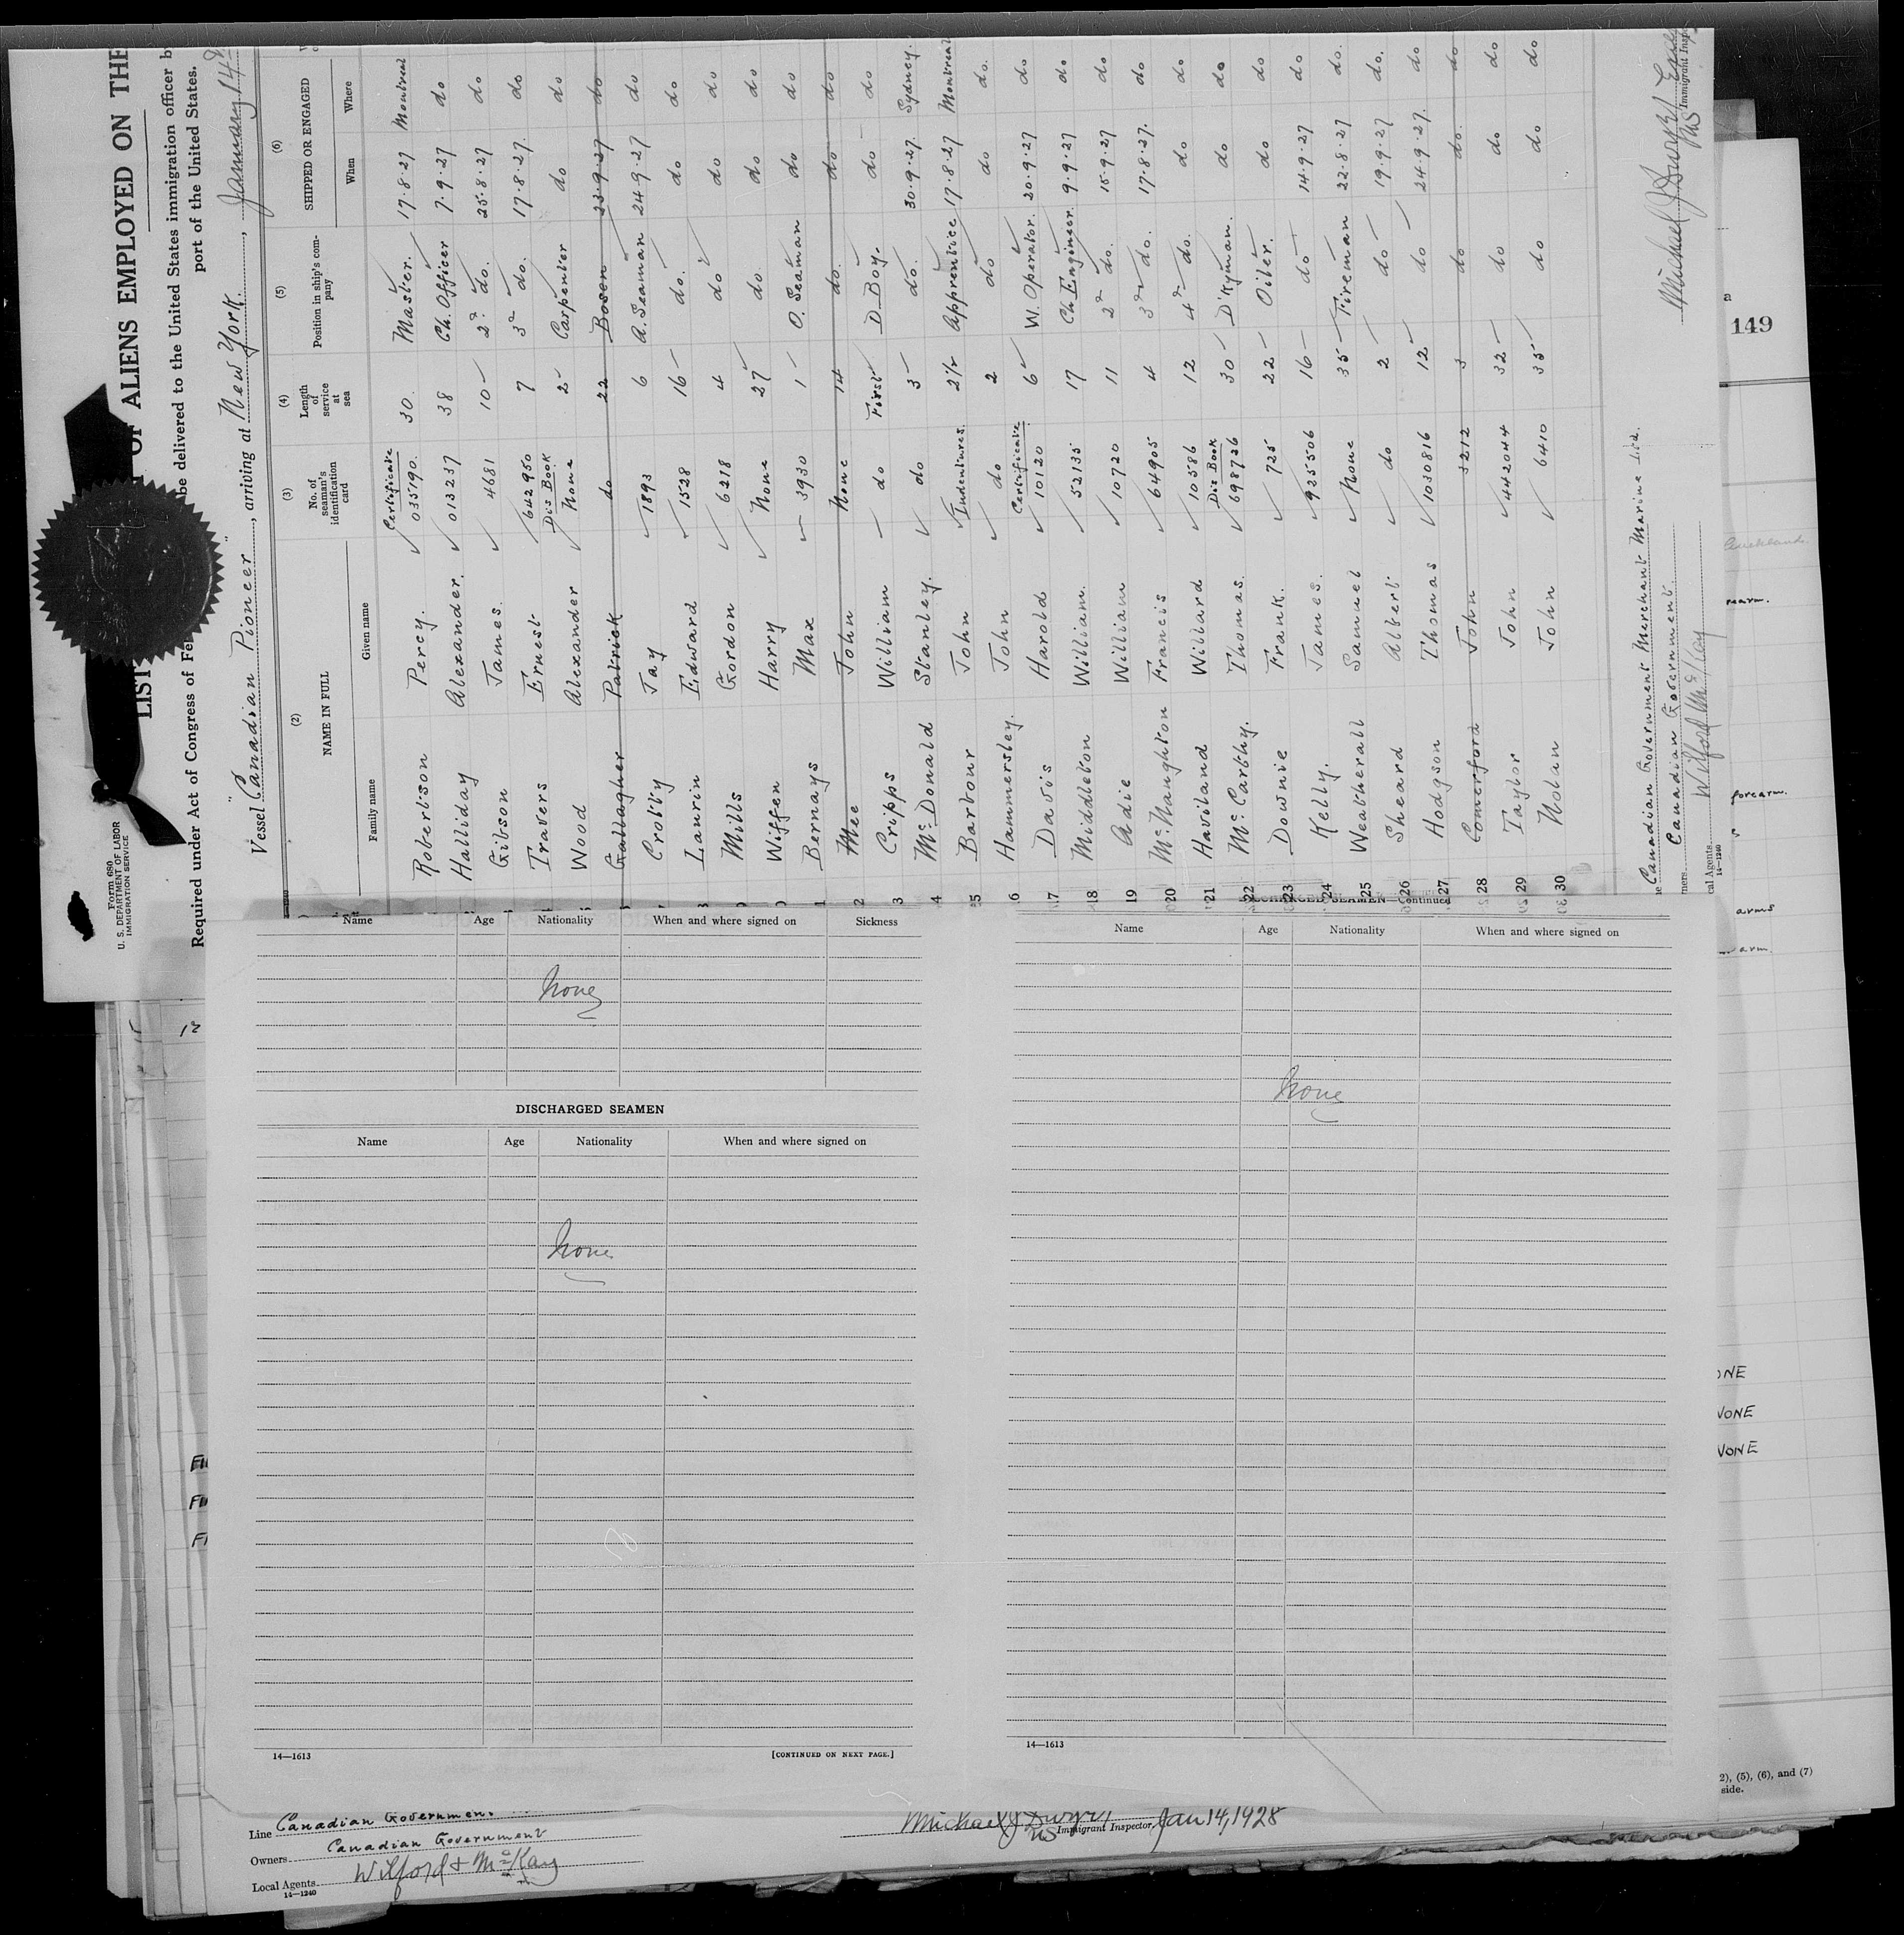 Form 680
U. S. DEPARTMENT OF LABOR
IMMIGRATION SERVICE
LIST OF ALIENS EMPLOYED ON THE
Required under Act of Congress of Fe be delivered to the United States immigration officer b
port of the United States.
Vessel "Canadian Pioneer", arriving at New York, January 14
(2) NAME IN FULL (3) No. of seaman's identification card (4) Length of service at sea (5) Position in ship's company (6) SHIPPED OR ENGAGED
Family name Given name When Where
Robertson Percy. Certificate 035190. 30. Master. 17.8.27 Montreal
Halliday Alexander. 013237 38 Ch. Officer 7.9.27 do
Gibson James. 4681 10 2d do. 25.8.27 do
Travers Ernest 642950 7 3d do. 17.8.27. do
Wood Alexander Dis Book None 2 Carpenter do do
Gallagher Patrick do 22 Bosen 23.9.27 do
Crolly Jay 1893 6 A. Seaman 24.9.27 do
Laurin Edward 1528 16 do. do do
Mills Gordon 6218 4 do do do
Wiffen Harry None 27 do. do do
Bernays Max 3930 1 O. Seaman do do
Mee John None 14 do. do do
Cripps William do First D. Boy. do do
McDonald Stanley. do 3 do. 30.9.27. Sydney.
14 Barbour John Indentures. 2½ Apprentice 17.8.27 Montreal
15 Hammersley. John do 2 do do do.
16 Davis Harold Certificate 10120 6 W. Operator. 20.9.27 do
17 Middleton William. 52135 17 Ch Engineer. 9.9.27 do
18 Adie William 10720 11 2d do. 15.9.27 do
19 McNaughton Francis 64905 4 3d do. 17.8.27. do
20 Haviland Willard 10586 12 4d do. do do
21 McCarthy. Thomas. Dis Book 698726 30 D'Kyman. do do
22 Downie Frank. 725 22 Oiler. do do
23 Kelly. James. 925506 16 do 14.9.27 do
24 Weatherall Samuel None 35 Fireman 22.8.27 do.
25 Sheard Albert do 2 do 19.9.27 do.
26 Hodgson Thomas 1030816 12 do 24.9.27. do
27 Comerford John 3212 3 do do. do
28 Taylor John 442044 32 do do do
29 Nolan John 6410 35 do do do
30
Canadian Government Merchant Marine Ltd.
Canadian Government.
Wilford McKay
cal Agents
14—1240
Immigrant Insp
149
Name Age Nationality When and where signed on Sickness
None
DISCHARGED SEAMEN
Name Age Nationality When and where signed on
None
14—1613 [CONTINUED ON NEXT PAGE.]
DISCHARGED SEAMEN—Continued
Name Age Nationality When and where signed on
None
14—1613
forearm.
arms
arm.
ONE
NONE
NONE
2), (5), (6), and (7)
side.
Line Canadian Government
Owners Canadian Government
Local Agents Wilford & McKay
14—1240
Michael J Dwyer
US Immigrant Inspector. Jan 14, 1928